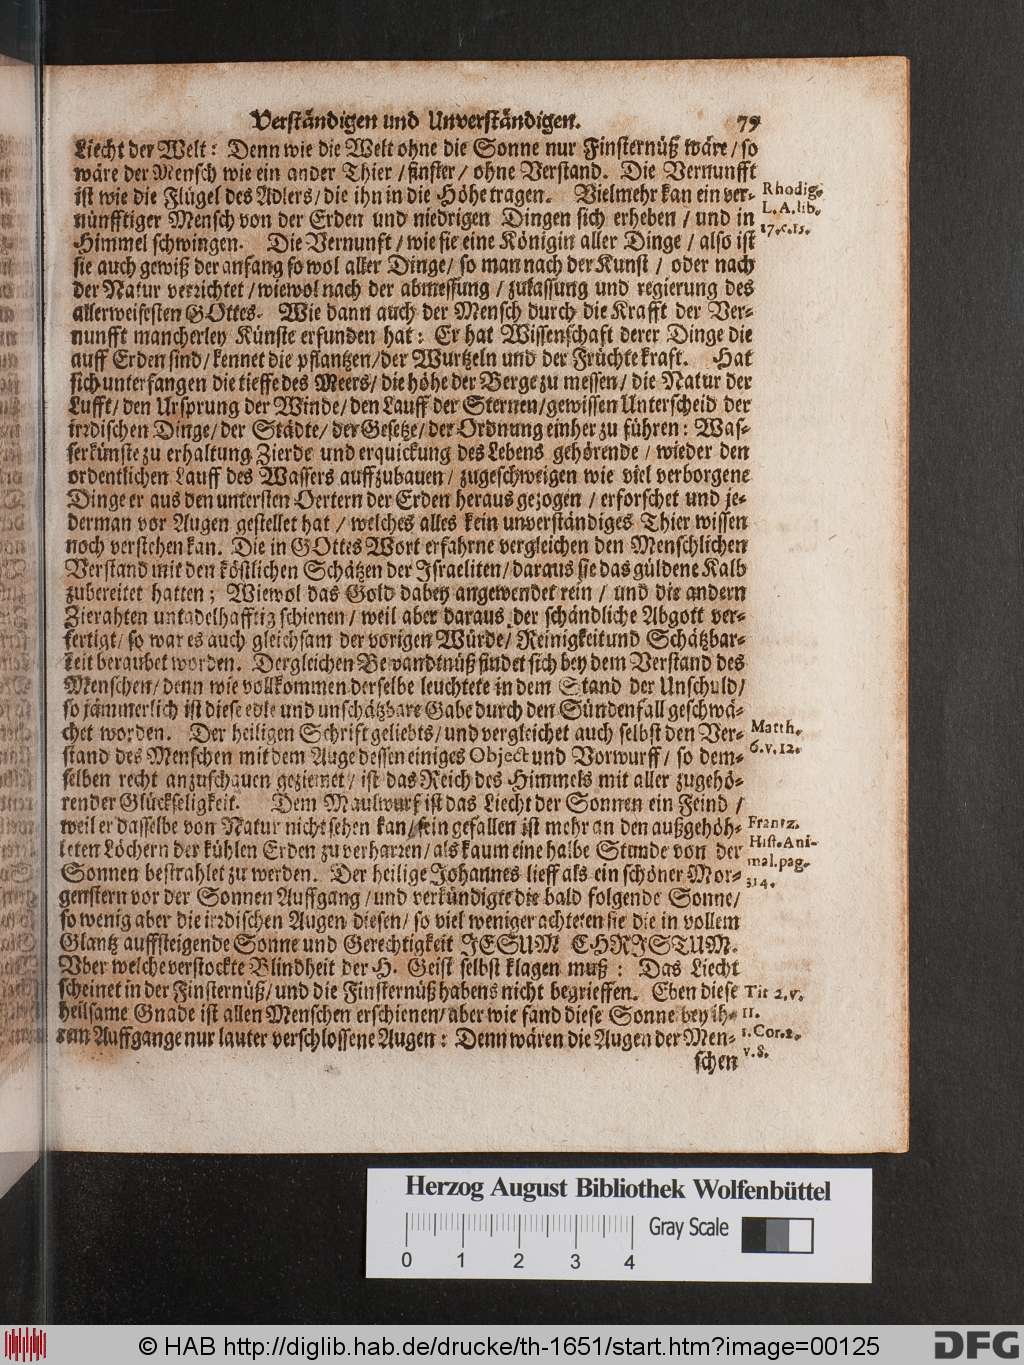 Verständigen und Unverständigen. 79
Liecht der Welt: Denn wie die Welt ohne die Sonne nur Finsternüß wäre/ so
wäre der Mensch wie ein ander Thier/ finster/ ohne Verstand. Die Vernunfft
ist wie die Flügel des Adlers/ die ihn in die Höhe tragen. Vielmehr kan ein ver-
nünfftiger Mensch von der Erden und niedrigen Dingen sich erheben/ und in
Himmel schwingen. Die Vernunft/ wie sie eine Königin aller Dinge/ also ist
sie auch gewiß der anfang so wol aller Dinge/ so man nach der Kunst/ oder nach
der Natur verrichtet/ wiewol nach der abmessung/ zulassung und regierung des
allerweisesten GOttes. Wie dann auch der Mensch durch die Krafft der Ver-
nunfft mancherley Künste erfunden hat: Er hat Wissenschaft derer Dinge die
auff Erden sind/ kennet die pflantzen/ der Wurtzeln und der Früchte kraft. Hat
sich unterfangen die tieffe des Meers/ die höhe der Berge zu messen/ die Natur der
Lufft/ den Ursprung der Winde/ den Lauff der Sternen/ gewissen Unterscheid der
irrdischen Dinge/ der Städte/ der Gesetze/ der Ordnung einher zu führen: Was-
serkünste zu erhaltung Zierde und erquickung des Lebens gehörende/ wieder den
ordentlichen Lauff des Wassers auffzubauen/ zugeschweigen wie viel verborgene
Dinge er aus den untersten Oertern der Erden heraus gezogen/ erforschet und je-
derman vor Augen gestellet hat/ welches alles kein unverständiges Thier wissen
noch verstehen kan. Die in GOttes Wort erfahrne vergleichen den Menschlichen
Verstand mit den köstlichen Schätzen der Israeliten/ daraus sie das güldene Kalb
zubereitet hatten; Wiewol das Gold dabey angewendet rein/ und die andern
Zierahten untadelhafftig schienen/ weil aber daraus der schändliche Abgott ver-
fertigt/ so war es auch gleichsam der vorigen Würde/ Reinigkeit und Schätzbar-
keit beraubet worden. Dergleichen Bewandtnüß findet sich bey dem Verstand des
Menschen/ denn wie vollkommen derselbe leuchtete in dem Stand der Unschuld/
so jämmerlich ist diese edle und unschätzbare Gabe durch den Sündenfall geschwä-
chet worden. Der heiligen Schrift geliebts/ und vergleichet auch selbst den Ver-
stand des Menschen mit dem Auge dessen einiges Object und Vorwurff/ so dem-
selben recht anzuschauen geziemet/ ist das Reich des Himmels mit aller zugehö-
render Glückseligkeit. Dem Maulwurf ist das Liecht der Sonnen ein Feind/
weil er dasselbe von Natur nicht sehen kan/ sein gefallen ist mehr an den außgehöh-
leten Löchern der kühlen Erden zu verharren/ als kaum eine halbe Stunde von der
Sonnen bestrahlet zu werden. Der heilige Johannes lieff als ein schöner Mor-
genstern vor der Sonnen Auffgang/ und verkündigte die bald folgende Sonne/
so wenig aber die irrdischen Augen diesen/ so viel weniger achteten sie die in vollem
Glantz auffsteigende Sonne und Gerechtigkeit JESUM CHRISTUM.
Vber welche verstockte Blindheit der H. Geist selbst klagen muß: Das Liecht
scheinet in der Finsternüß/ und die Finsternüß habens nicht begrieffen. Eben diese
heilsame Gnade ist allen Menschen erschienen/ aber wie fand diese Sonne bey ih-
rem Auffgange nur lauter verschlossene Augen: Denn wären die Augen der Men-
schen
Rhodig.
L. A. lib.
17. c. 15.
Matth.
6. v. 12.
Frantz.
Hist. Ani-
mal. pag.
314.
Tit 2. v.
11.
1. Cor. 2.
v. 8.
Herzog August Bibliothek Wolfenbüttel
Gray Scale
0 1 2 3 4
© HAB http://diglib.hab.de/drucke/th-1651/start.htm?image=00125
DFG